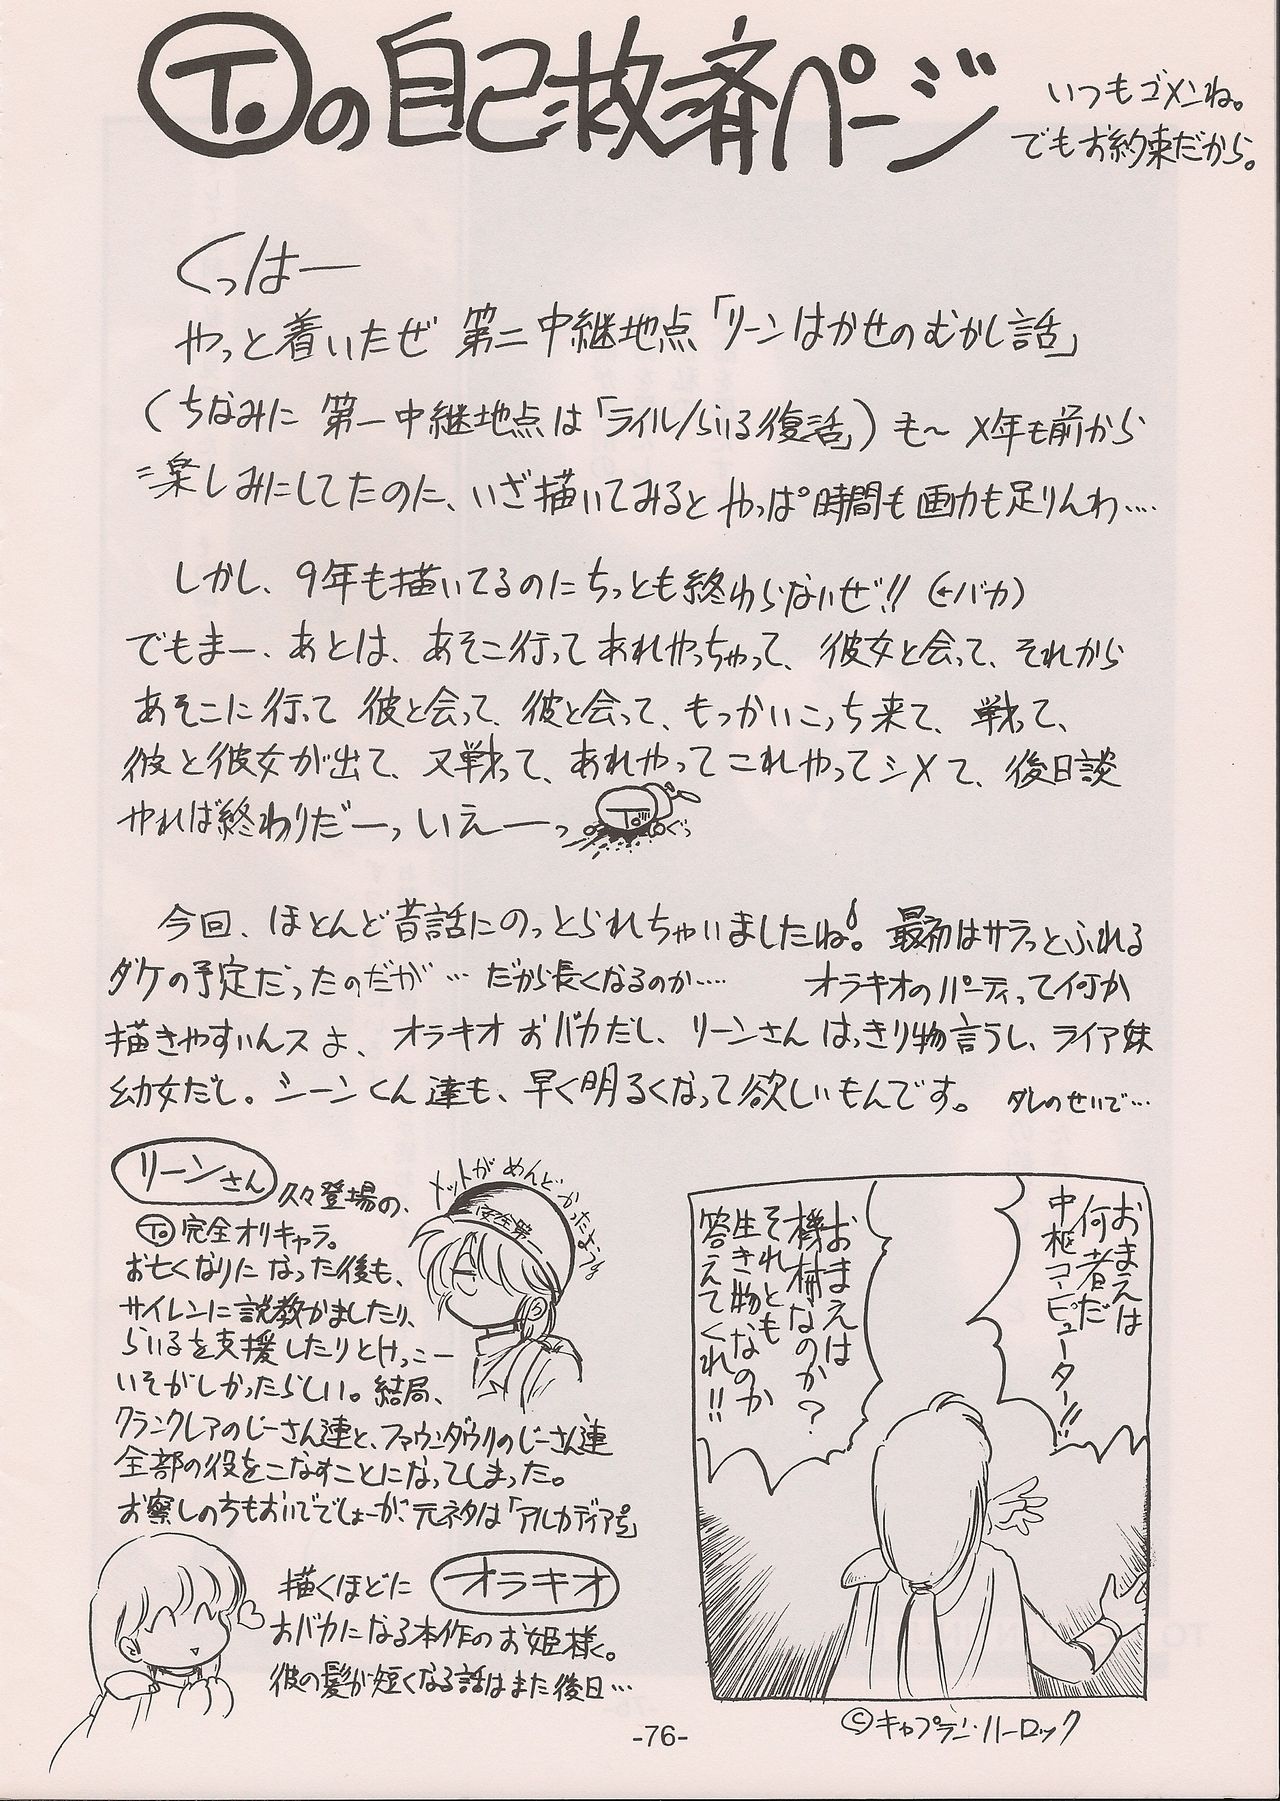 T.の自己救済ページ
いつもゴメンね。
でもお約束だから。
くっはー
やっと着いたぜ 第二中継地点「リーンはかせのむかし話」
(ちなみに 第一中継地点は「ライル/らいる復活」) も〜 X年も前から
楽しみにしてたのに、いざ描いてみると やっぱ時間も画力も足りんわ‥‥
しかし、9年も描いてるのにちっとも終わらないぜ!! (←バカ)
でもまー、あとは、あそこ行って あれやっちゃって、彼女と会って、それから
あそこに行って 彼と会って、彼と会って、もっかいこっち来て、戦って、
彼と彼女が出て、又戦って、あれやって これやって シメて、後日談
やれば終わりだーっ いえーっ
T. ぐっ
今回、ほとんど昔話にのっとられちゃいましたね。最初はサラっとふれる
ダケの予定だったのだが… だから長くなるのか‥‥ オラキオのパーティって何か
描きやすいんスよ、オラキオ おバカだし、リーンさん はっきり物言うし、ライア妹
幼女だし。シーンくん達も、早く明るくなって欲しいもんです。 ダレのせいで…
リーンさん 久々登場の、
T.完全オリキャラ。
お亡くなりになった後も、
サイレンに説教かましたり、
らいるを支援したりとけっこー
いそがしかったらしい。結局、
クランクレアのじーさん連と、ファウンダウリのじーさん連
全部の役をこなすことになってしまった。
お察しのちもおいででしょーが、元ネタは「アルカディア号」
メットがめんどかったなうy
安全第一
描くほどに オラキオ
おバカになる本作のお姫様。
彼の髪が短くなる話はまた後日…
おまえは
何者だ
中枢コンピューター!!
おまえは
機械なのか?
それとも
生き物なのか
答えてくれ!!
©キャプテン・ハーロック
-76-